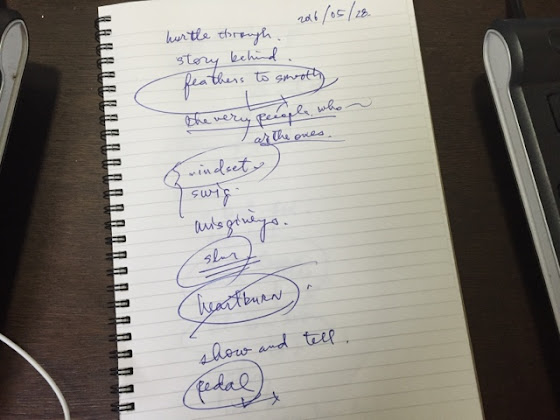 2016/05/28
hurtle through.
story behind.
feathers to smooth
the very people who ~
as the ones.
mindset
swig.
misgivings.
slur
heartburn
show and tell.
pedal